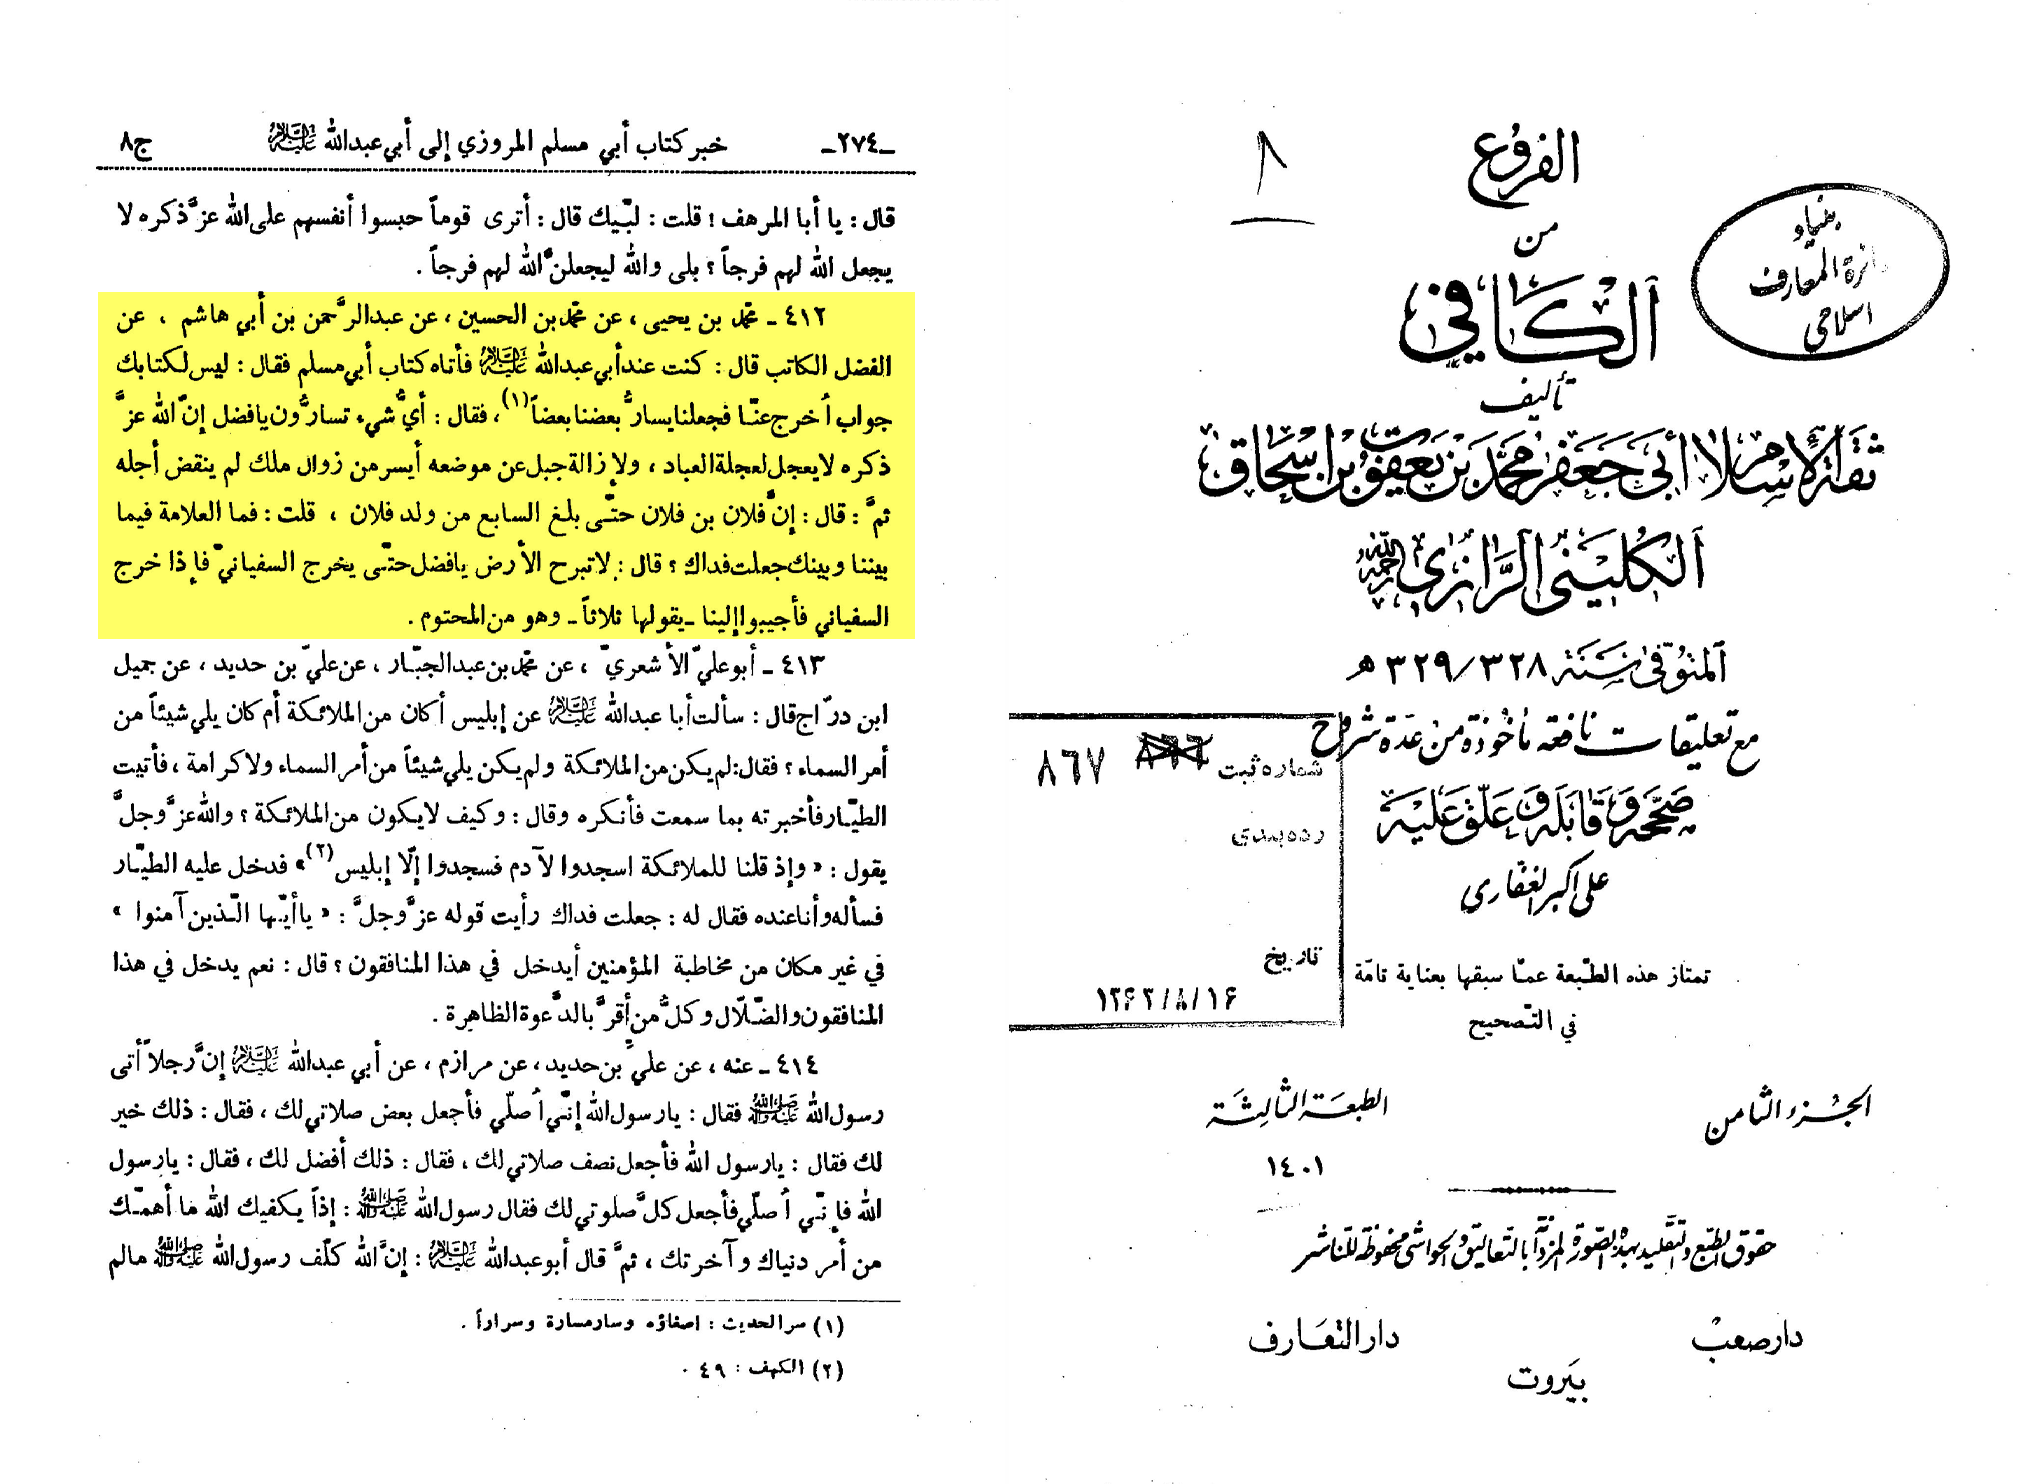 الفروع
من
الكافي
تأليف
ثقة الإسلام أبي جعفر محمد بن يعقوب بن إسحاق
الكليني الرازي رحمه الله
المتوفى سنة ٣٢٨/٣٢٩ هـ
مع تعليقات نافعة مأخوذة من عدة شروح
صححه وقابله وعلق عليه
علي أكبر الغفاري
تمتاز هذه الطبعة عما سبقها بعناية تامة
في التصحيح
الجزء الثامن
الطبعة الثالثة
١٤٠١
حقوق الطبع والتقليد بهذه الصورة المزدانة بالتعاليق والحواشي محفوظة للناشر
دار صعب
دار التعارف
بيروت
٨
بنياد
دائرة المعارف
اسلامي
شماره ثبت ٨٦٦ ٨٦٧
رده بندى
تاريخ
١٣٦٢/٨/١٦
-٢٧٤- خبر كتاب أبي مسلم المروزي إلى أبي عبدالله عليه السلام ج٨
قال : يا أبا المرهف ؛ قلت : لبّيك قال : أترى قوماً حبسوا أنفسهم على الله عزَّ ذكره لا
يجعل الله لهم فرجاً ؟ بلى والله ليجعلنَّ الله لهم فرجاً .
٤١٢ - محمّد بن يحيى ، عن محمّد بن الحسين ، عن عبد الرَّحمن بن أبي هاشم ، عن
الفضل الكاتب قال : كنت عند أبي عبدالله عليه السلام فأتاه كتاب أبي مسلم فقال : ليس لكتابك
جواب اُخرج عنّا فجعلنا يسارُّ بعضنا بعضاً (١) ، فقال : أيُّ شيء تسارُّون يا فضل إنّ الله عزَّ
ذكره لا يعجل لعجلة العباد ، ولإزالة جبل عن موضعه أيسر من زوال ملك لم ينقض أجله
ثمَّ : قال : إنَّ فلان بن فلان حتّى بلغ السابع من ولد فلان ، قلت : فما العلامة فيما
بيننا وبينك جعلت فداك ؟ قال : لا تبرح الأرض يا فضل حتّى يخرج السفيانيّ فإذا خرج
السفياني فأجيبوا إلينا - يقولها ثلاثاً - وهو من المحتوم .
٤١٣ - أبو عليّ الأشعريّ ، عن محمّد بن عبد الجبّار ، عن عليّ بن حديد ، عن جميل
ابن درّاج قال : سألت أبا عبدالله عليه السلام عن إبليس أكان من الملائكة أم كان يلي شيئاً من
أمر السماء ؟ فقال : لم يكن من الملائكة ولم يكن يلي شيئاً من أمر السماء ولا كرامة ، فأتيت
الطيّار فأخبرته بما سمعت فأنكره وقال : وكيف لا يكون من الملائكة ؟ والله عزَّ وجلَّ
يقول : « وإذ قلنا للملائكة اسجدوا لآدم فسجدوا إلّا إبليس (٢) » فدخل عليه الطيّار
فسأله وأنا عنده فقال له : جعلت فداك رأيت قوله عزَّ وجلَّ : « يا أيّها الّذين آمنوا »
في غير مكان من مخاطبة المؤمنين أيدخل في هذا المنافقون ؟ قال : نعم يدخل في هذا
المنافقون والضّلّال وكلُّ من أقرَّ بالدَّعوة الظاهرة .
٤١٤ - عنه ، عن علي بن حديد ، عن مرازم ، عن أبي عبدالله عليه السلام إنَّ رجلاً أتى
رسول الله صلى الله عليه وآله فقال : يا رسول الله إنّي اُصلّي فأجعل بعض صلاتي لك ، فقال : ذلك خير
لك فقال : يا رسول الله فأجعل نصف صلاتي لك ، فقال : ذلك أفضل لك ، فقال : يا رسول
الله فإنّي اُصلّي فأجعل كلَّ صلوتي لك فقال رسول الله صلى الله عليه وآله : إذاً يكفيك الله ما أهمّك
من أمر دنياك وآخرتك ، ثمَّ قال أبو عبدالله عليه السلام : إنَّ الله كلّف رسول الله صلى الله عليه وآله ما لم
(١) سر الحديث : اصفاؤه وسار مسارة وسراراً .
(٢) الكهف : ٤٩ .